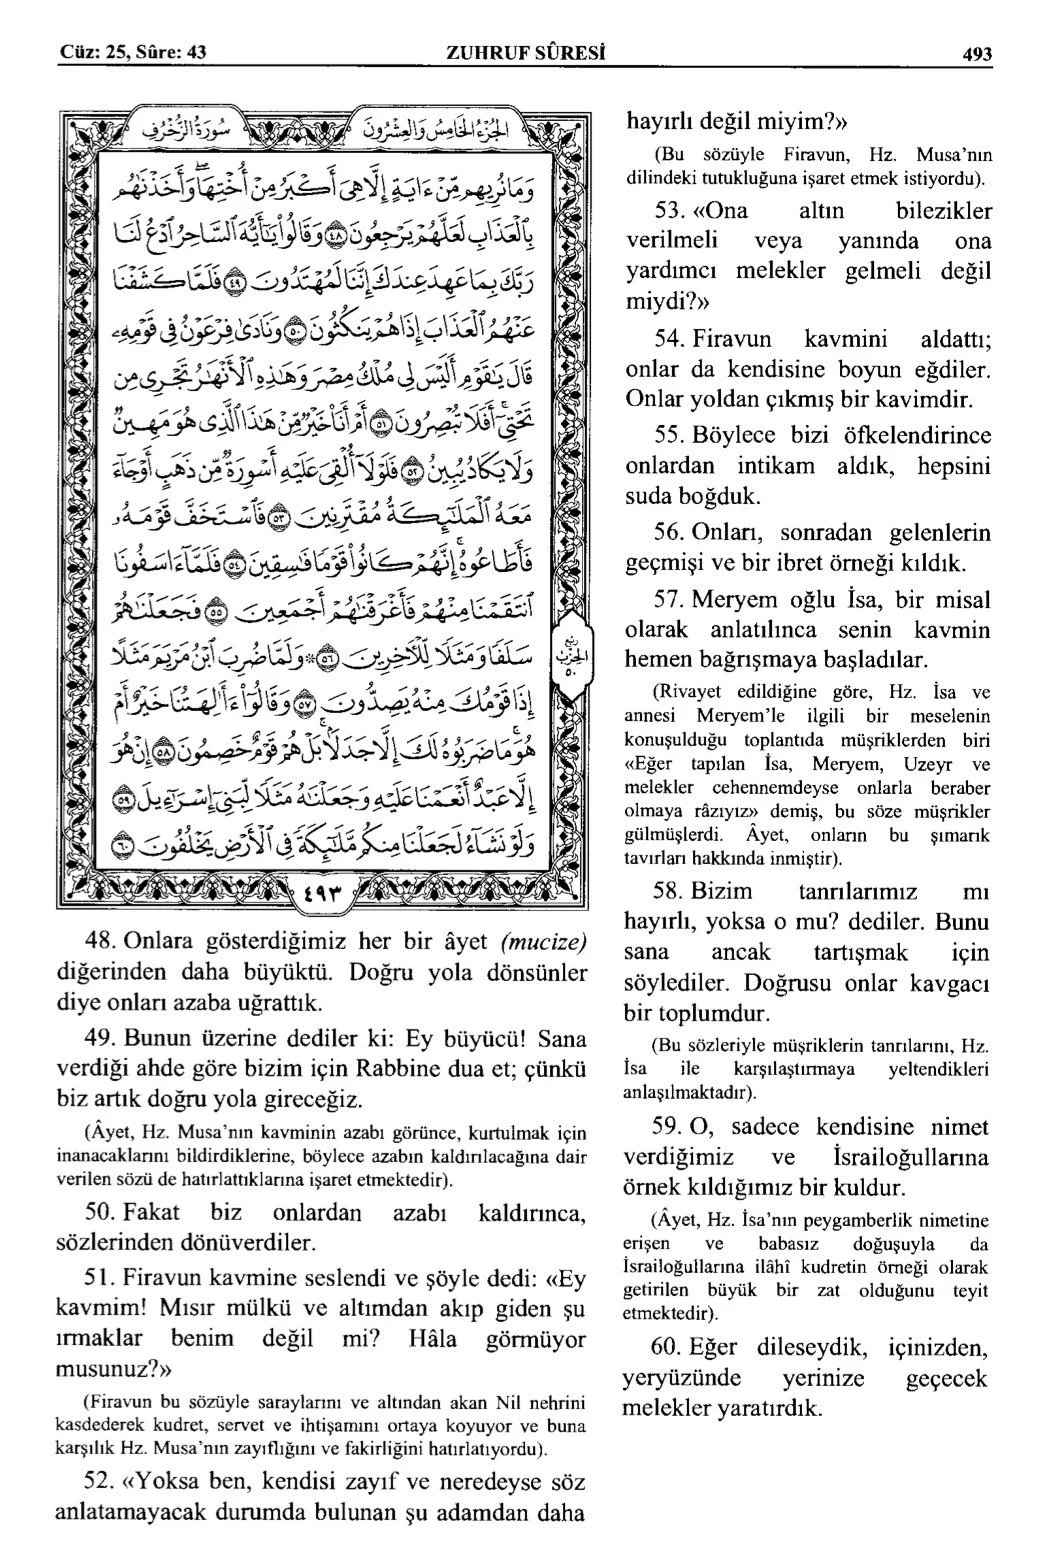 Cüz: 25, Sûre: 43
ZUHRUF SÛRESİ
493
سُورَةُ الزُّخْرُفِ
الجُزْءُ الخَامِسُ وَالعِشْرُونَ
وَمَا نُرِيهِم مِّنْ ءَايَةٍ إِلَّا هِىَ أَكْبَرُ مِنْ أُخْتِهَا ۖ وَأَخَذْنَٰهُم
بِٱلْعَذَابِ لَعَلَّهُمْ يَرْجِعُونَ ٤٨ وَقَالُوا۟ يَٰٓأَيُّهَ ٱلسَّاحِرُ ٱدْعُ لَنَا
رَبَّكَ بِمَا عَهِدَ عِندَكَ إِنَّنَا لَمُهْتَدُونَ ٤٩ فَلَمَّا كَشَفْنَا
عَنْهُمُ ٱلْعَذَابَ إِذَا هُمْ يَنكُثُونَ ٥٠ وَنَادَىٰ فِرْعَوْنُ فِى قَوْمِهِۦ
قَالَ يَٰقَوْمِ أَلَيْسَ لِى مُلْكُ مِصْرَ وَهَٰذِهِ ٱلْأَنْهَٰرُ تَجْرِى مِن
تَحْتِىٓ ۖ أَفَلَا تُبْصِرُونَ ٥١ أَمْ أَنَا۠ خَيْرٌ مِّنْ هَٰذَا ٱلَّذِى هُوَ مَهِينٌ
وَلَا يَكَادُ يُبِينُ ٥٢ فَلَوْلَآ أُلْقِىَ عَلَيْهِ أَسْوِرَةٌ مِّن ذَهَبٍ أَوْ جَآءَ
مَعَهُ ٱلْمَلَٰٓئِكَةُ مُقْتَرِنِينَ ٥٣ فَٱسْتَخَفَّ قَوْمَهُۥ
فَأَطَاعُوهُ ۚ إِنَّهُمْ كَانُوا۟ قَوْمًا فَٰسِقِينَ ٥٤ فَلَمَّآ ءَاسَفُونَا
ٱنتَقَمْنَا مِنْهُمْ فَأَغْرَقْنَٰهُمْ أَجْمَعِينَ ٥٥ فَجَعَلْنَٰهُمْ
سَلَفًا وَمَثَلًا لِّلْءَاخِرِينَ ٥٦ * وَلَمَّا ضُرِبَ ٱبْنُ مَرْيَمَ مَثَلًا
إِذَا قَوْمُكَ مِنْهُ يَصِدُّونَ ٥٧ وَقَالُوٓا۟ ءَأَٰلِهَتُنَا خَيْرٌ أَمْ
هُوَ ۚ مَا ضَرَبُوهُ لَكَ إِلَّا جَدَلًۢا ۚ بَلْ هُمْ قَوْمٌ خَصِمُونَ ٥٨ إِنْ هُوَ
إِلَّا عَبْدٌ أَنْعَمْنَا عَلَيْهِ وَجَعَلْنَٰهُ مَثَلًا لِّبَنِىٓ إِسْرَٰٓءِيلَ ٥٩
وَلَوْ نَشَآءُ لَجَعَلْنَا مِنكُم مَّلَٰٓئِكَةً فِى ٱلْأَرْضِ يَخْلُفُونَ ٦٠
ربع
الحزب
٥٠
٤٩٣
48. Onlara gösterdiğimiz her bir âyet (mucize)
diğerinden daha büyüktü. Doğru yola dönsünler
diye onları azaba uğrattık.
49. Bunun üzerine dediler ki: Ey büyücü! Sana
verdiği ahde göre bizim için Rabbine dua et; çünkü
biz artık doğru yola gireceğiz.
(Âyet, Hz. Musa'nın kavminin azabı görünce, kurtulmak için
inanacaklarını bildirdiklerine, böylece azabın kaldırılacağına dair
verilen sözü de hatırlattıklarına işaret etmektedir).
50. Fakat biz onlardan azabı kaldırınca,
sözlerinden dönüverdiler.
51. Firavun kavmine seslendi ve şöyle dedi: «Ey
kavmim! Mısır mülkü ve altımdan akıp giden şu
ırmaklar benim değil mi? Hâla görmüyor
musunuz?»
(Firavun bu sözüyle saraylarını ve altından akan Nil nehrini
kasdederek kudret, servet ve ihtişamını ortaya koyuyor ve buna
karşılık Hz. Musa'nın zayıflığını ve fakirliğini hatırlatıyordu).
52. «Yoksa ben, kendisi zayıf ve neredeyse söz
anlatamayacak durumda bulunan şu adamdan daha
hayırlı değil miyim?»
(Bu sözüyle Firavun, Hz. Musa'nın
dilindeki tutukluğuna işaret etmek istiyordu).
53. «Ona altın bilezikler
verilmeli veya yanında ona
yardımcı melekler gelmeli değil
miydi?»
54. Firavun kavmini aldattı;
onlar da kendisine boyun eğdiler.
Onlar yoldan çıkmış bir kavimdir.
55. Böylece bizi öfkelendirince
onlardan intikam aldık, hepsini
suda boğduk.
56. Onları, sonradan gelenlerin
geçmişi ve bir ibret örneği kıldık.
57. Meryem oğlu İsa, bir misal
olarak anlatılınca senin kavmin
hemen bağrışmaya başladılar.
(Rivayet edildiğine göre, Hz. İsa ve
annesi Meryem'le ilgili bir meselenin
konuşulduğu toplantıda müşriklerden biri
«Eğer tapılan İsa, Meryem, Uzeyr ve
melekler cehennemdeyse onlarla beraber
olmaya râzıyız» demiş, bu söze müşrikler
gülmüşlerdi. Âyet, onların bu şımarık
tavırları hakkında inmiştir).
58. Bizim tanrılarımız mı
hayırlı, yoksa o mu? dediler. Bunu
sana ancak tartışmak için
söylediler. Doğrusu onlar kavgacı
bir toplumdur.
(Bu sözleriyle müşriklerin tanrılarını, Hz.
İsa ile karşılaştırmaya yeltendikleri
anlaşılmaktadır).
59. O, sadece kendisine nimet
verdiğimiz ve İsrailoğullarına
örnek kıldığımız bir kuldur.
(Âyet, Hz. İsa'nın peygamberlik nimetine
erişen ve babasız doğuşuyla da
İsrailoğullarına ilâhî kudretin örneği olarak
getirilen büyük bir zat olduğunu teyit
etmektedir).
60. Eğer dileseydik, içinizden,
yeryüzünde yerinize geçecek
melekler yaratırdık.